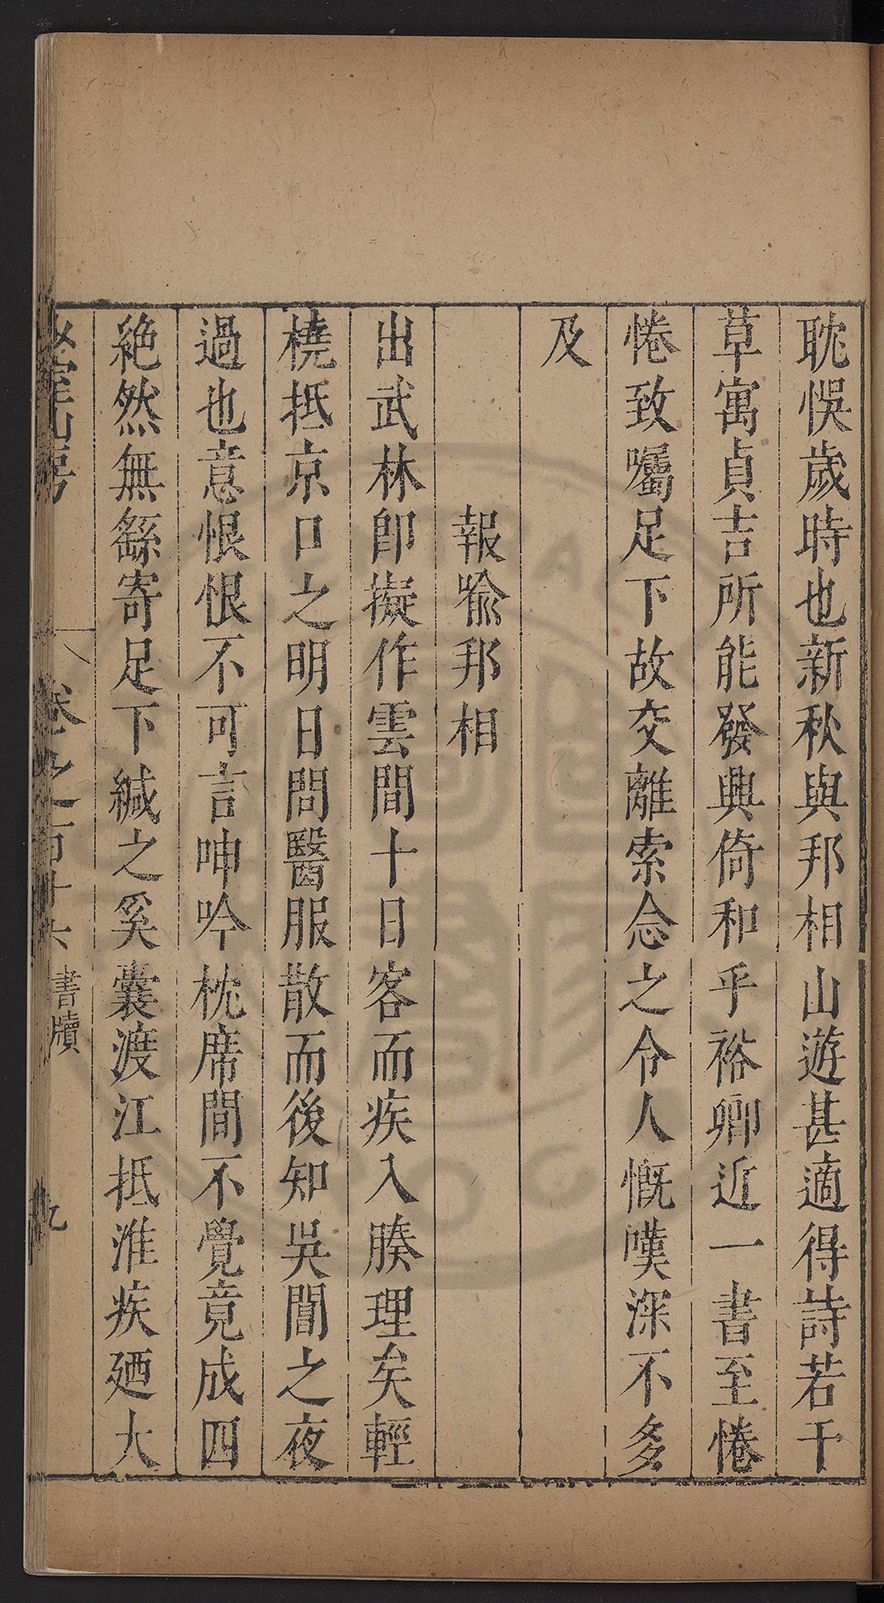 耽悮歲時也新秋與邦相山遊甚適得詩若干
草寓貞吉所能發興倚和乎裕卿近一書至惓
惓致囑足下故交離索念之令人慨嘆深不多
及
報喻邦相
出武林卽擬作雲間十日客而疾入腠理矣輕
橈抵京口之明日問醫服散而後知吳閶之夜
過也意恨恨不可言呻吟枕席間不覺竟成四
絶然無繇寄足下緘之奚囊渡江抵淮疾廼大
山房 卷之百十六 書牘 九